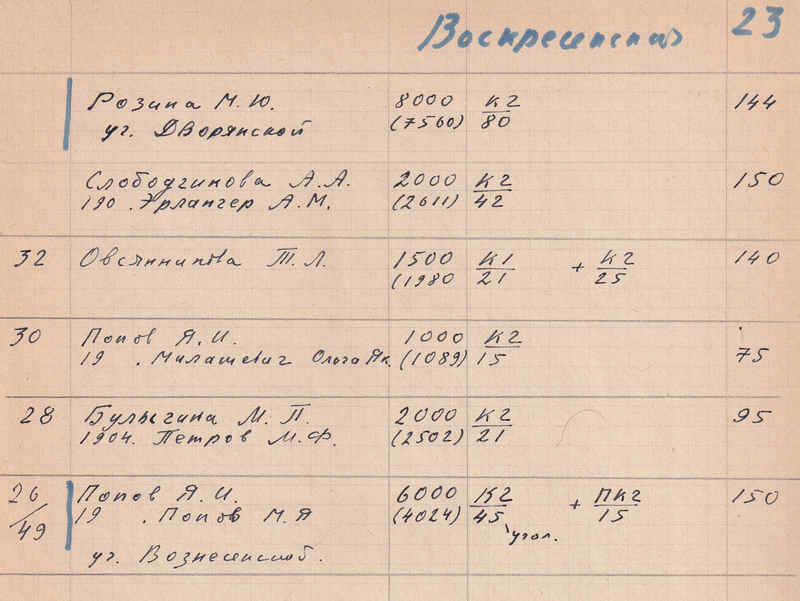 Воскресенская 23
Розина М. Ю. 8000 К2 144
уг. Дворянской (7560) 80
Слободчикова А. А. 2000 К2 150
190 . Эрлангер А. М. (2611) 42
32 Овсянникова Т. Л. 1500 К1 + К2 140
(1980 21 25
30 Попов Я. И. 1000 К2
19 . Милашевич Ольга Як. (1089) 15 75
28 Булыгина М. П. 2000 К2 95
1904. Петров М. Ф. (2502) 21
26/49 Попов Я. И. 6000 К2 + ПК2 150
19 . Попов М. Я (4024) 45 15
угол.
уг. Вознесенской.